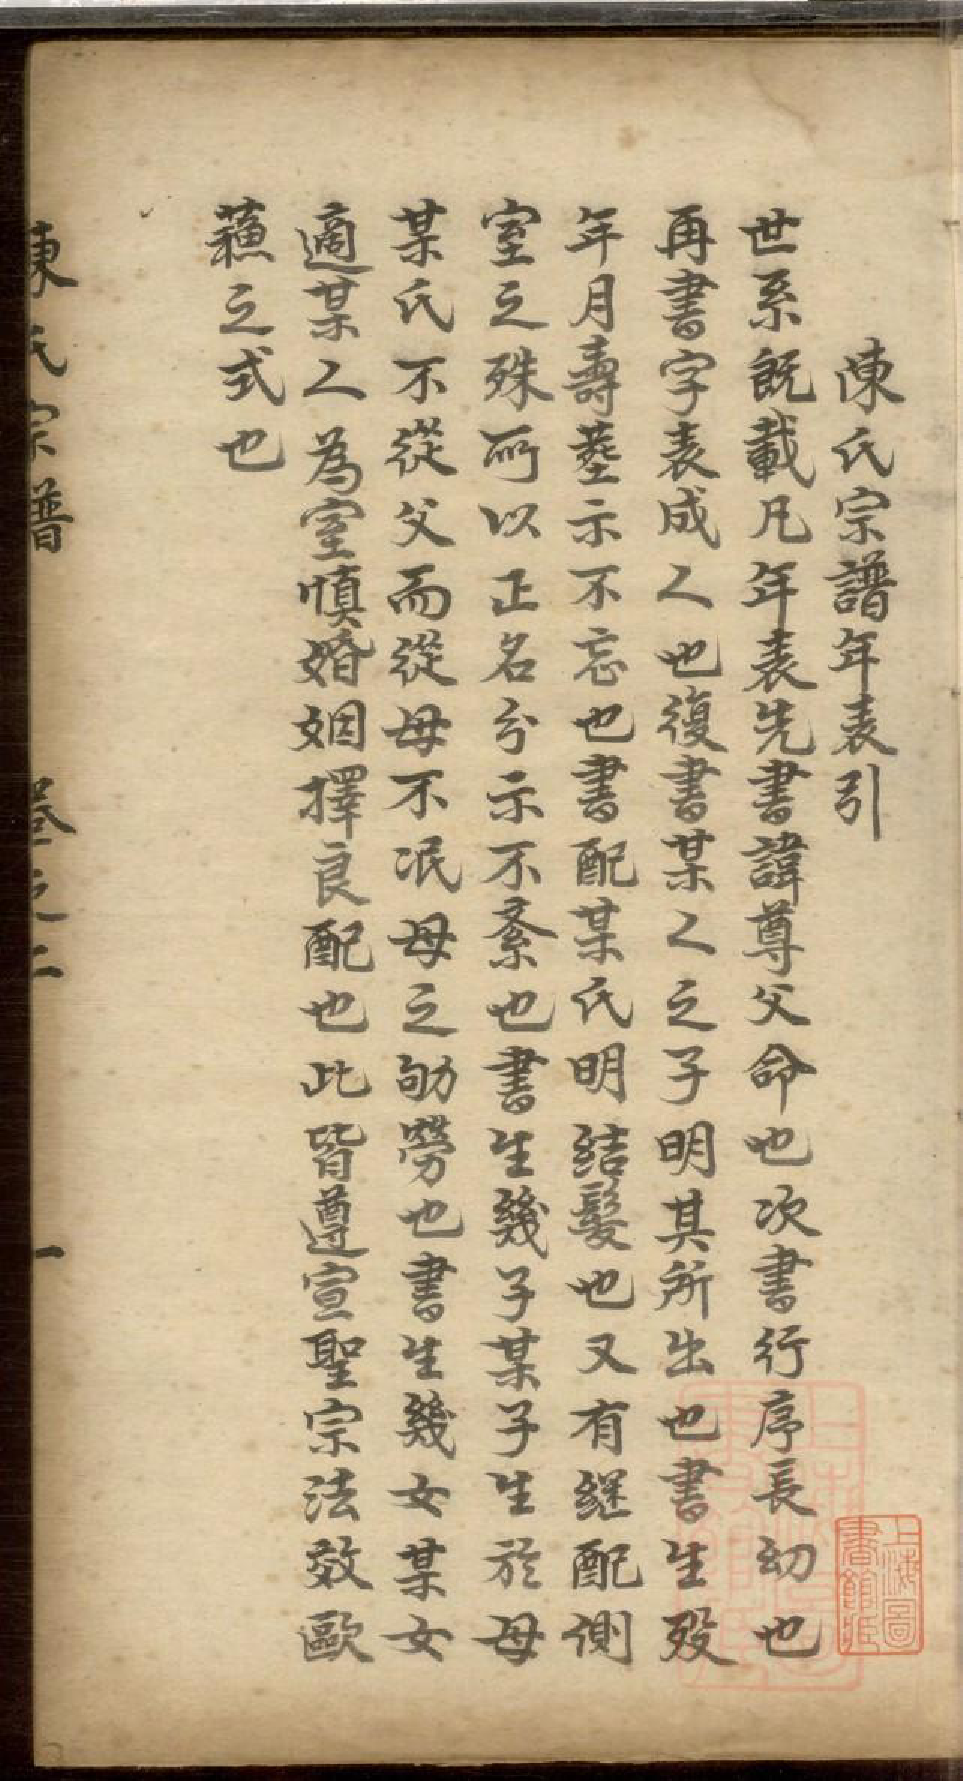 陳氏宗譜年表引
世系既載凡年表先書諱尊父命也次書行序長幼也
再書字表成人也復書某人之子明其所出也書生歿
年月壽塟示不忘也書配某氏明結髮也又有継配側
室之殊所以正名分示不紊也書生幾子某子生於母
某氏不從父而從母不泯母之劬勞也書生幾女某女
適某人為室慎婚姻擇良配也此皆遵宣聖宗法效歐
蘓之式也
陳氏宗譜 卷之二 一
上海圖書館藏